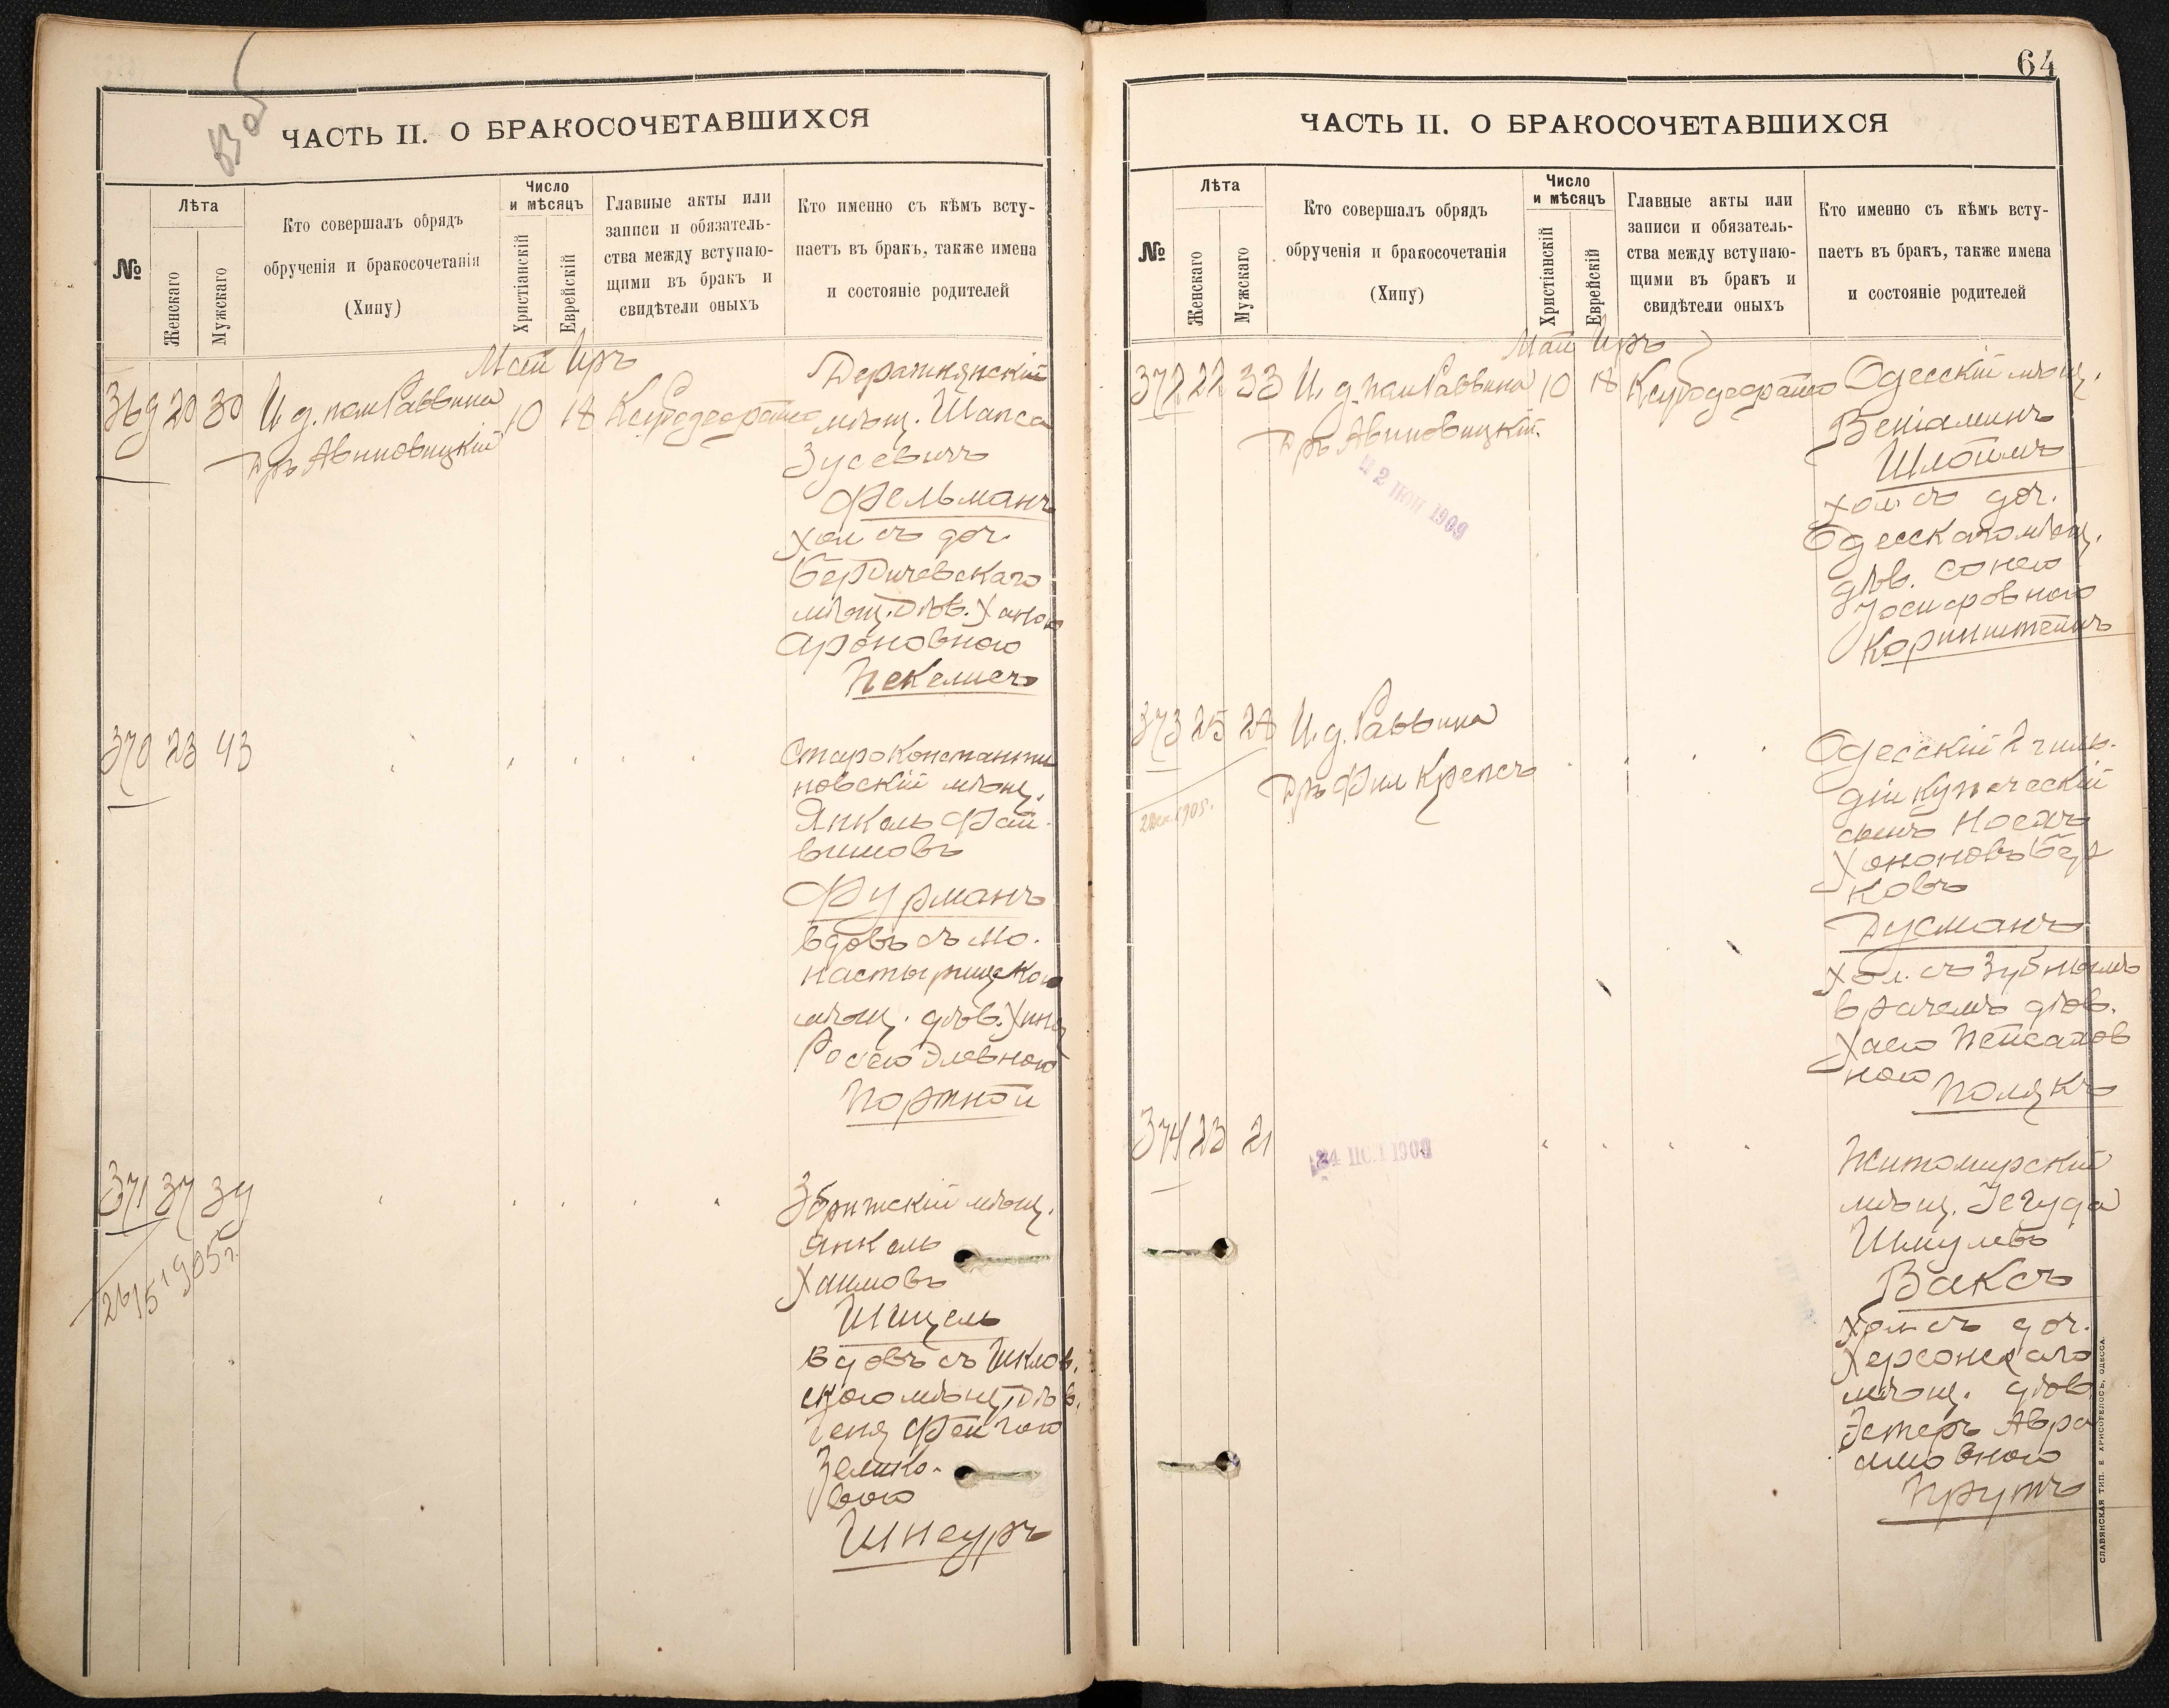 ЧАСТЬ II. О БРАКОСОЧЕТАВШИХСЯ
№
Лѣта
Женскаго
Мужскаго
Кто совершалъ обрядъ
обрученія и бракосочетанія
(Хипу)
Число
и мѣсяцъ
Христіанскій
Еврейскій
Главные акты или
записи и обязатель-
ства между вступаю-
щими въ бракъ и
свидѣтели оныхъ
Кто именно съ кѣмъ всту-
паетъ въ бракъ, также имена
и состояніе родителей
Май Иръ
369 20 30 И. д. пом Раввина 10 18
Дръ Авиновицкій
Деражнянскій
мѣщ. Шапса
Зусевичъ
Фельманъ
хол съ доч.
Бердичевскаго
мѣщ. дѣв. Ханою
Ароновною
Пекелисъ
370 23 43
Староконстанти
новскій мѣщ.
Янкель Фай-
вишовъ
Фурманъ
вдовъ съ Мо-
настырищскою
мѣщ. дѣв.
Портной
371 37 39
26/5 1905 г.
Збрижскій мѣщ.
Янкель
Хаимовъ
Шицель
вдовъ съ Шклов.
скою мѣщ. дѣв.
Геня Фейгою
Зелико-
вою
Шнеуръ
64
ЧАСТЬ II. О БРАКОСОЧЕТАВШИХСЯ
№
Лѣта
Женскаго
Мужскаго
Кто совершалъ обрядъ
обрученія и бракосочетанія
(Хипу)
Число
и мѣсяцъ
Христіанскій
Еврейскій
Главные акты или
записи и обязатель-
ства между вступаю-
щими въ бракъ и
свидѣтели оныхъ
Кто именно съ кѣмъ всту-
паетъ въ бракъ, также имена
и состояніе родителей
Май Иръ
372 22 33 И. д. пом Раввина 10 18
Дръ Авиновицкій.
2 ІЮН 1909
Одесскій мѣщ.
Веніаминъ
Шлоймъ
хол съ доч.
Одесскаго мѣщ.
дѣв. Сонею
Іосифовною
Коринштейнъ
373 25 28 И. д. Раввина
Дръ Фил Крепсъ
1905.
Одесскій 2 гиль-
діи купеческій
сынъ Носехъ
Хононовъ Бер
ковъ
Дусманъ
хол. съ зубнымъ
врачемъ дѣв.
Хаею Пейсахов
ною Полякъ
374 23 21
Житомирскій
мѣщ. Іегуда
Шмулевъ
Ваксъ
хол съ доч.
Херсонскаго
мѣщ. дѣв
Эстеръ Авра
мовною
Прутъ
СЛАВЯНСКАЯ ТИП. Е. ХРИСОГЕЛОСЪ, ОДЕССА.